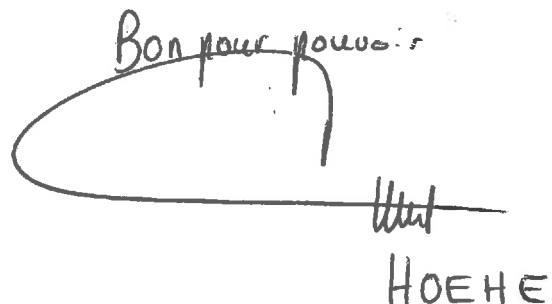 Bon pour pouvoir
HOEHE